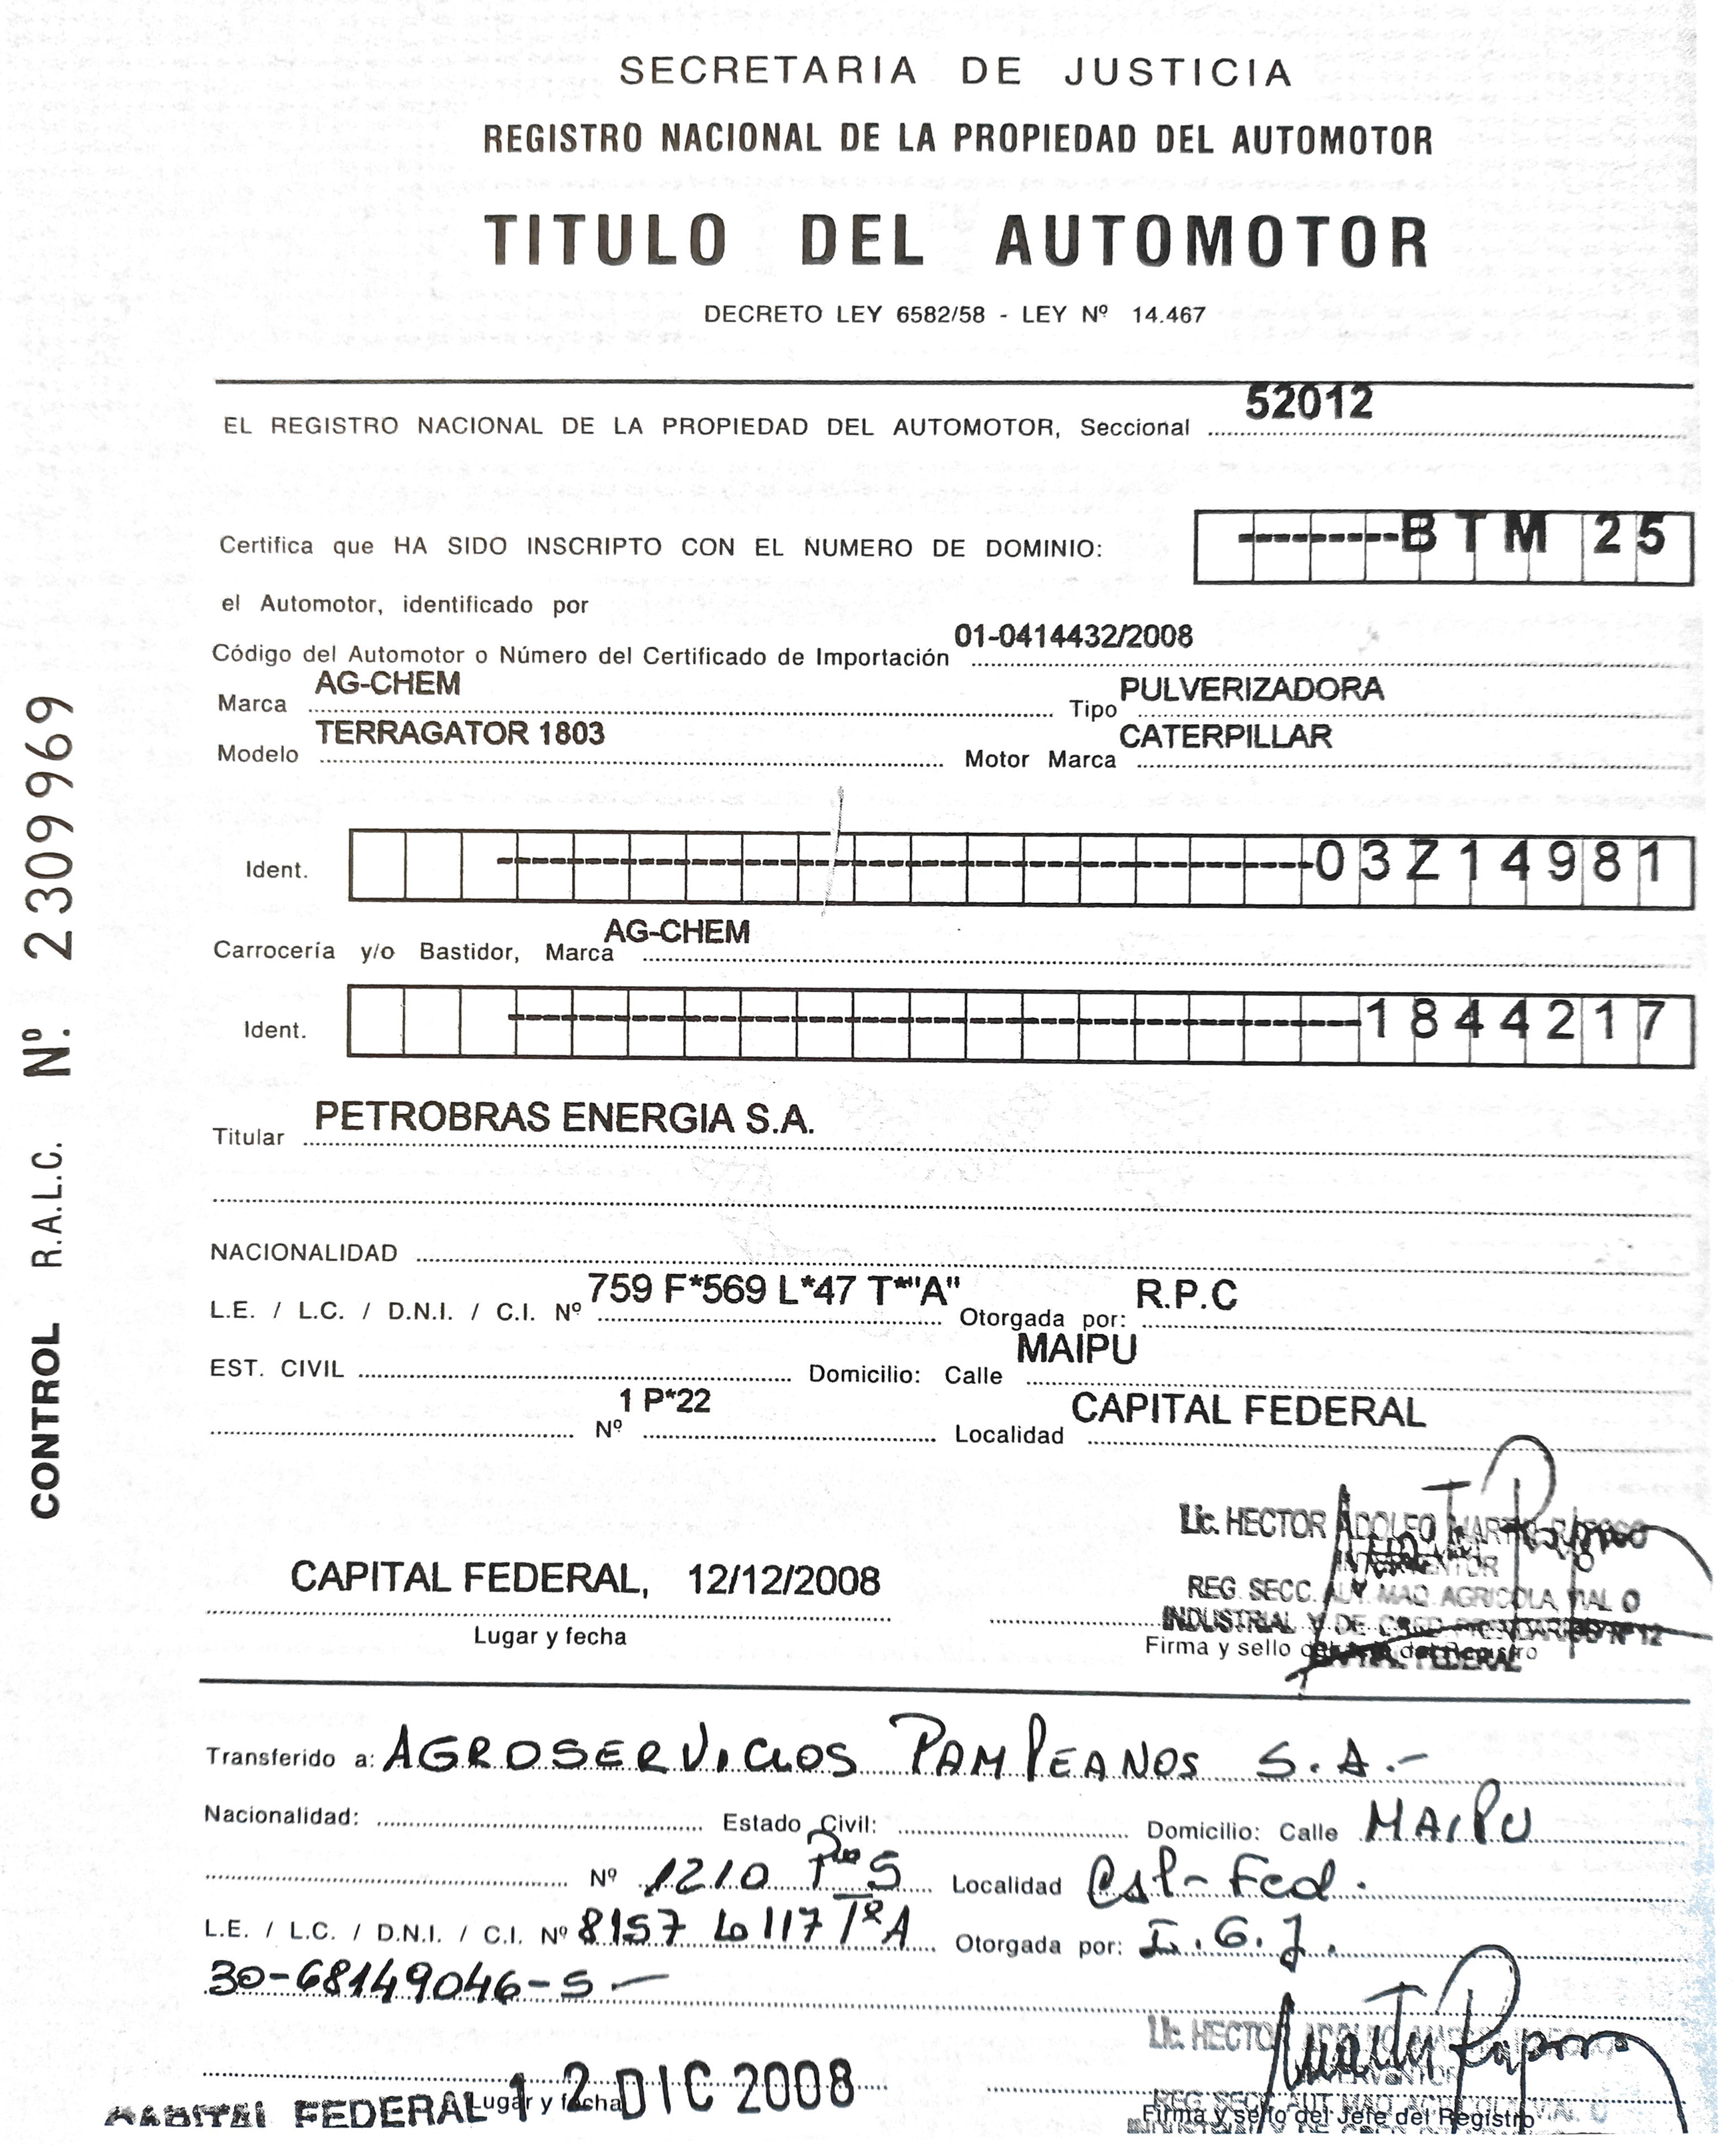 SECRETARIA DE JUSTICIA
REGISTRO NACIONAL DE LA PROPIEDAD DEL AUTOMOTOR
TITULO DEL AUTOMOTOR
DECRETO LEY 6582/58 - LEY Nº 14.467
EL REGISTRO NACIONAL DE LA PROPIEDAD DEL AUTOMOTOR, Seccional 52012
Certifica que HA SIDO INSCRIPTO CON EL NUMERO DE DOMINIO: --------BTM 25
el Automotor, identificado por
Código del Automotor o Número del Certificado de Importación 01-0414432/2008
Marca AG-CHEM Tipo PULVERIZADORA
Modelo TERRAGATOR 1803 Motor Marca CATERPILLAR
Ident. 03Z14981
Carrocería y/o Bastidor, Marca AG-CHEM
Ident. 1844217
Titular PETROBRAS ENERGIA S.A.
NACIONALIDAD
L.E. / L.C. / D.N.I. / C.I. Nº 759 F*569 L*47 T*"A" Otorgada por: R.P.C
EST. CIVIL Domicilio: Calle MAIPU
Nº 1 P*22 Localidad CAPITAL FEDERAL
Lic. HECTOR ADOLFO
INTERVENTOR
REG. SECC. AUT. MAQ. AGRICOLA, VIAL O
INDUSTRIAL Y DE CRED. PRENDARIOS Nº 12
CAPITAL FEDERAL
CAPITAL FEDERAL, 12/12/2008
Lugar y fecha Firma y sello del Jefe del Registro
Transferido a: AGROSERVICIOS PAMPEANOS S.A.-
Nacionalidad: Estado Civil: Domicilio: Calle MAIPU
Nº 1210 Pso 5 Localidad Cap-Fed.
L.E. / L.C. / D.N.I. / C.I. Nº 8157 Lo 117 Tº A Otorgada por: I.G.J.
30-68149046-5-
Lic. HECTOR
INTERVENTOR
CAPITAL FEDERAL 12 DIC 2008
Lugar y fecha Firma y sello del Jefe del Registro
CONTROL R.A.L.C. Nº. 2309969